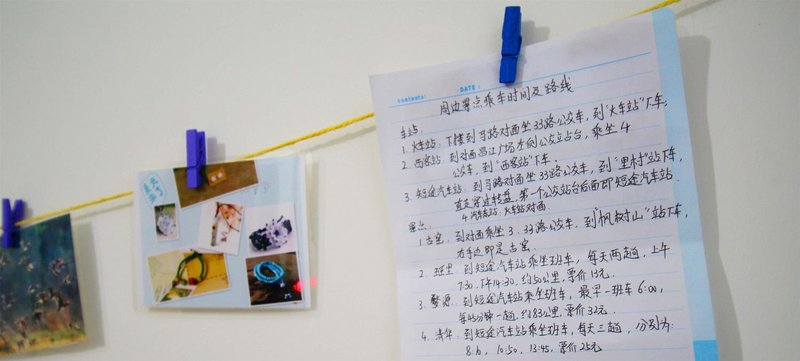 Contents:
DATE:
周边景点乘车时间及路线
车站:
1. 火车站: 下楼到马路对面坐33路公交车, 到"火车站"下车;
2. 西客站: 到对面昌江广场左侧公交站台, 乘坐4
公交车, 到"西客站"下车.
3. 短途汽车站: 到马路对面坐33路公交车, 到"里村"站下车,
直走穿过转盘, 第一个公交站台后面即短途汽车站.
4. 汽车东站, 火车站对面.
景点:
1. 古窑, 到对面乘坐3、33路公交车, 到"枫树山"站下车,
右手边即是古窑.
2. 瑶里: 到短途汽车站乘坐班车, 每天两趟, 上午
7:30, 下午14:30, 约50公里, 票价13元.
3. 婺源: 到短途汽车站乘坐班车, 最早一班车6:00,
每45分钟一趟, 约83公里, 票价32元.
4. 清华: 到短途汽车站乘坐班车, 每天三趟, 分别为:
8:10, 10:50, 13:45, 票价25元.